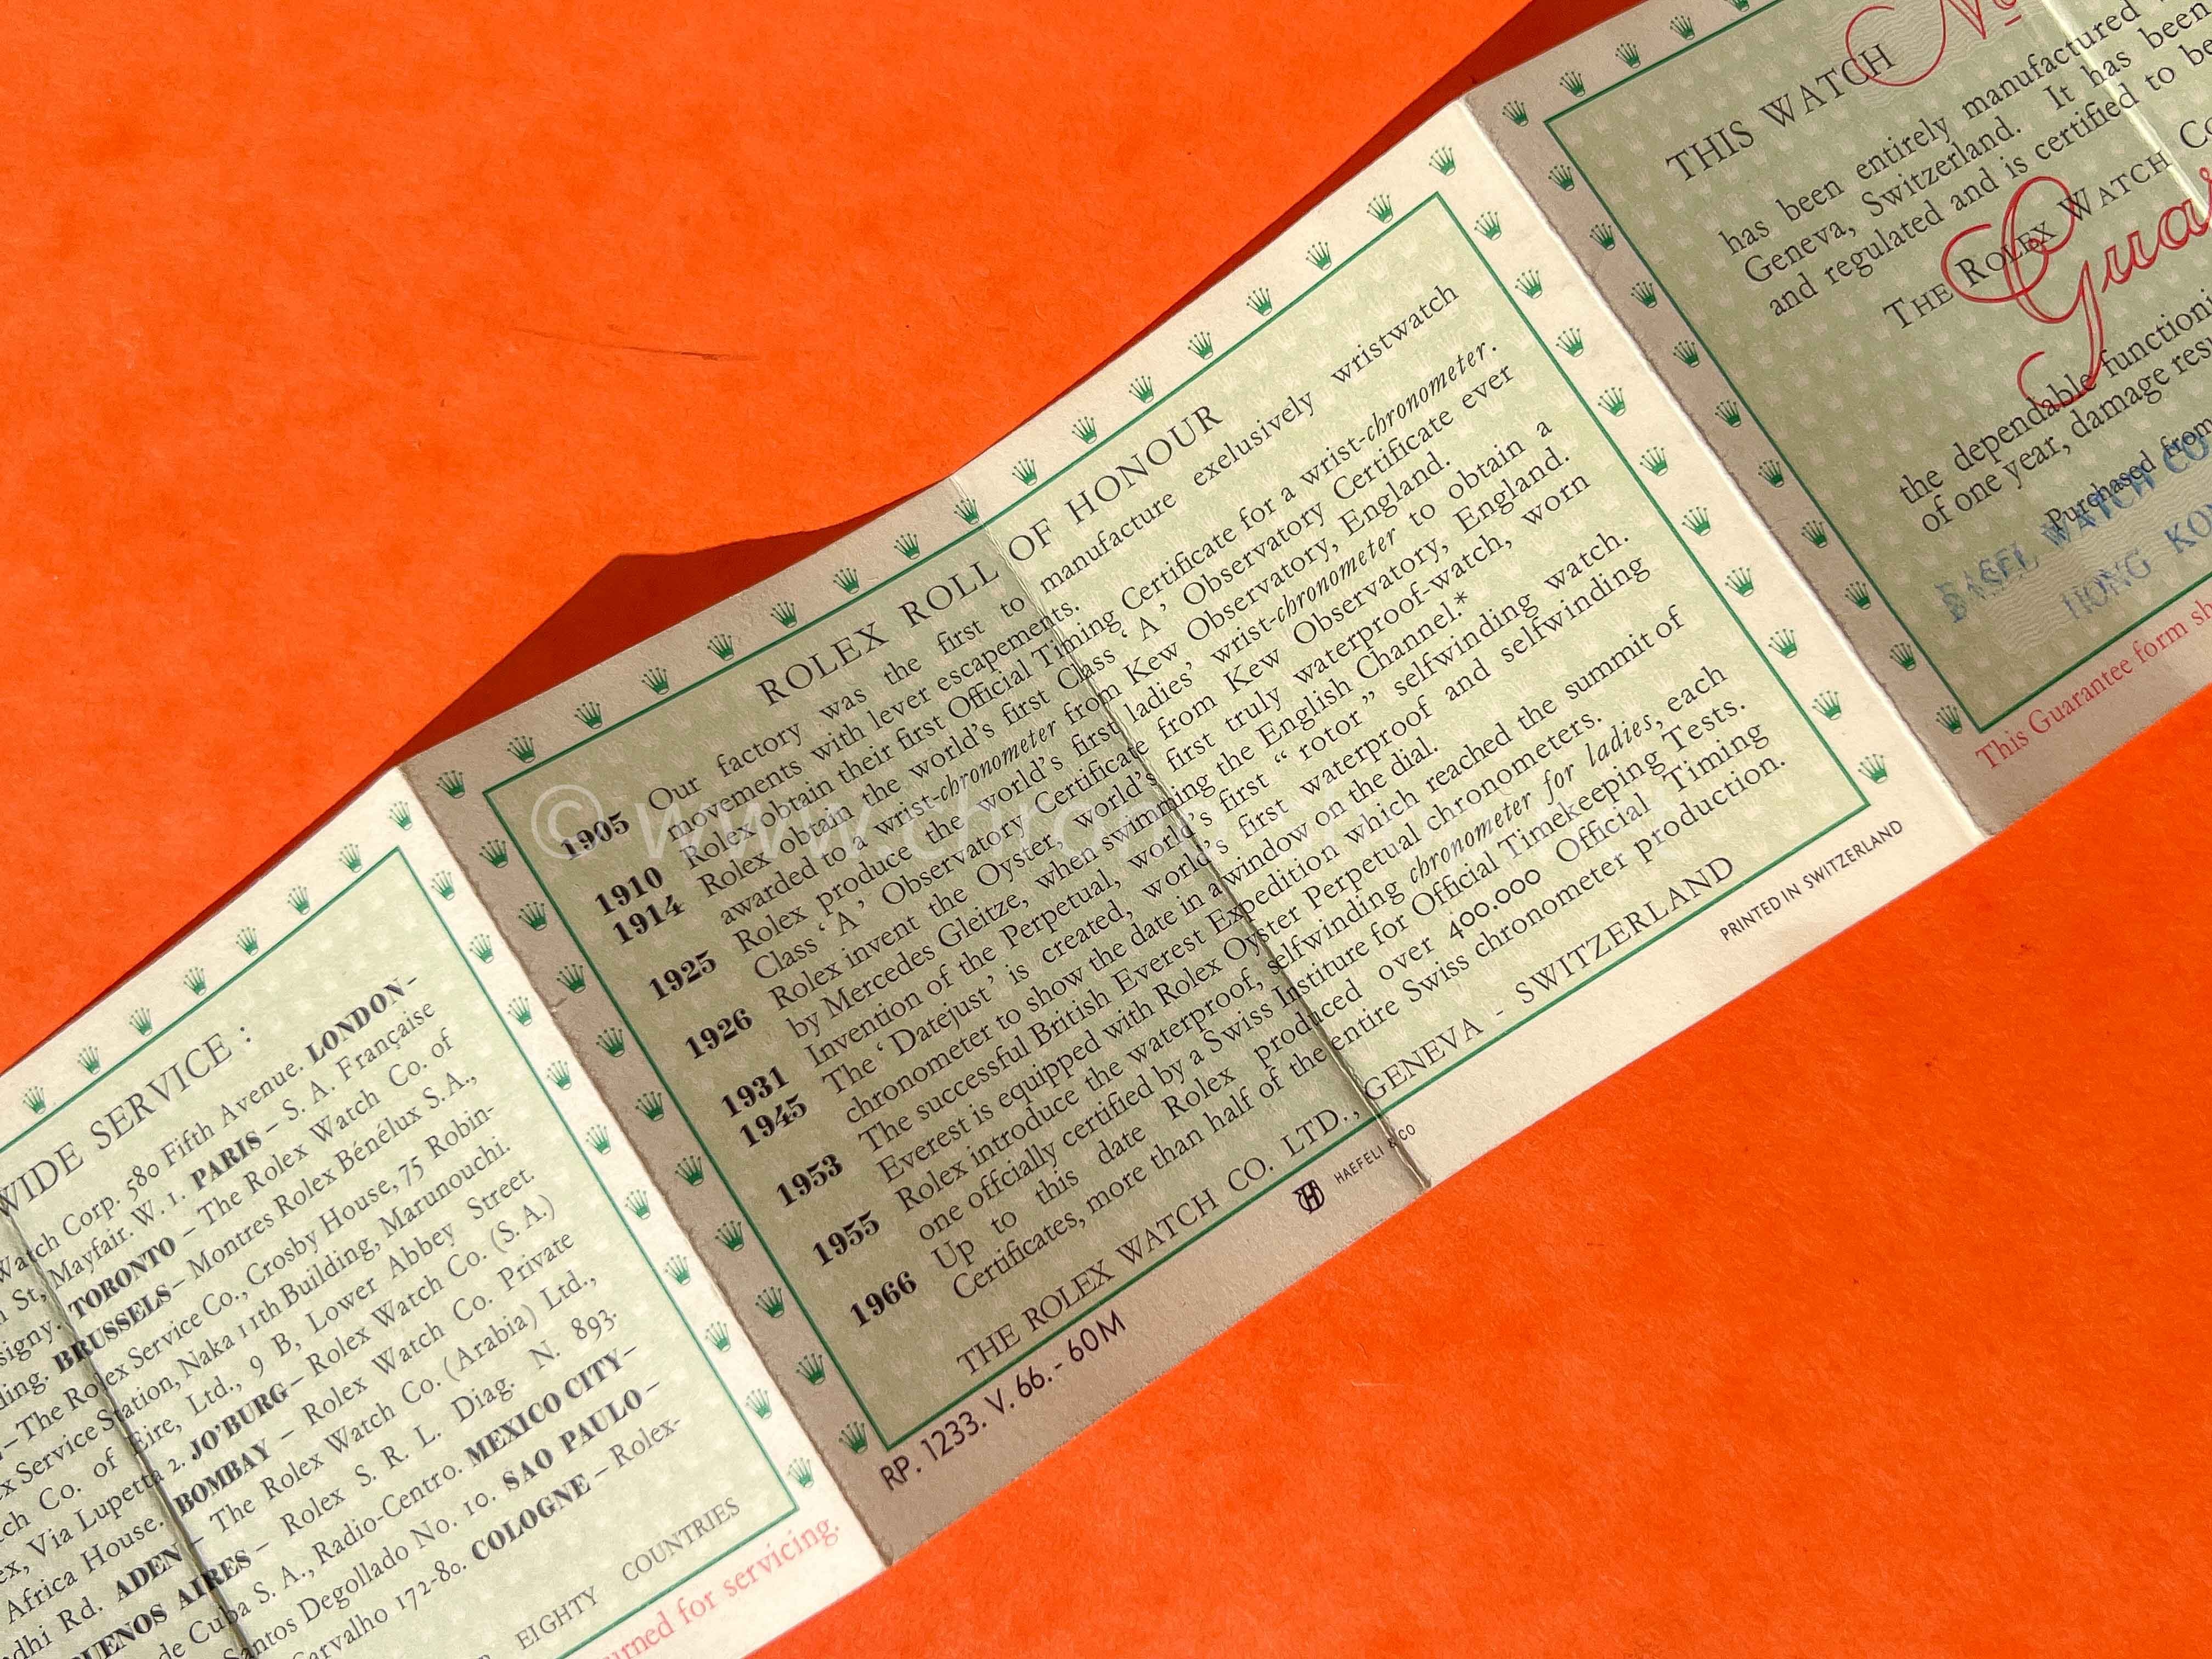 WIDE SERVICE :
Watch Corp. 580 Fifth Avenue. LONDON-
St, Mayfair. W. 1. PARIS – S. A. Française
signy. TORONTO – The Rolex Watch Co. of
ding. BRUSSELS – Montres Rolex Bénélux S.A.,
– The Rolex Service Co., Crosby House, 75 Robin-
ex Service Station, Naka 11th Building, Marunouchi.
ch Co. of Eire, Ltd., 9 B, Lower Abbey Street.
ex, Via Lupetta 2. JO'BURG – Rolex Watch Co. (S. A.)
Africa House. BOMBAY – Rolex Watch Co. Private
dhi Rd. ADEN – The Rolex Watch Co. (Arabia) Ltd.,
BUENOS AIRES – Rolex S. R. L. Diag. N. 893.
de Cuba S. A., Radio-Centro. MEXICO CITY–
Santos Degollado No. 10. SAO PAULO –
Carvalho 172-80. COLOGNE – Rolex-
EIGHTY COUNTRIES
urned for servicing.
ROLEX ROLL OF HONOUR
1905 Our factory was the first to manufacture exclusively wristwatch
movements with lever escapements.
1910 Rolex obtain their first Official Timing Certificate for a wrist-chronometer.
1914 Rolex obtain the world's first Class ‘ A ’ Observatory Certificate ever
awarded to a wrist-chronometer from Kew Observatory, England.
1925 Rolex produce the world's first ladies' wrist-chronometer to obtain a
Class ‘ A ’ Observatory Certificate from Kew Observatory, England.
1926 Rolex invent the Oyster, world's first truly waterproof-watch, worn
by Mercedes Gleitze, when swimming the English Channel.*
1931 Invention of the Perpetual, world's first “ rotor ” selfwinding watch.
1945 The ‘ Datejust ’ is created, world's first waterproof and selfwinding
chronometer to show the date in a window on the dial.
1953 The successful British Everest Expedition which reached the summit of
Everest is equipped with Rolex Oyster Perpetual chronometers.
1955 Rolex introduce the waterproof, selfwinding chronometer for ladies, each
one offcially certified by a Swiss Institure for Official Timekeeping Tests.
1966 Up to this date Rolex produced over 400.000 Official Timing
Certificates, more than half of the entire Swiss chronometer production.
THE ROLEX WATCH CO. LTD., GENEVA - SWITZERLAND
RP. 1233. V. 66. - 60M
HAEFELI & CO
PRINTED IN SWITZERLAND
THIS WATCH No
has been entirely manufactured
Geneva, Switzerland. It has been
and regulated and is certified to be
THE ROLEX WATCH Co
Gua
the dependable functioni
of one year, damage resu
Purchased from
BASEL WATCH CO
HONG KO
This Guarantee form sh
© www.chrono